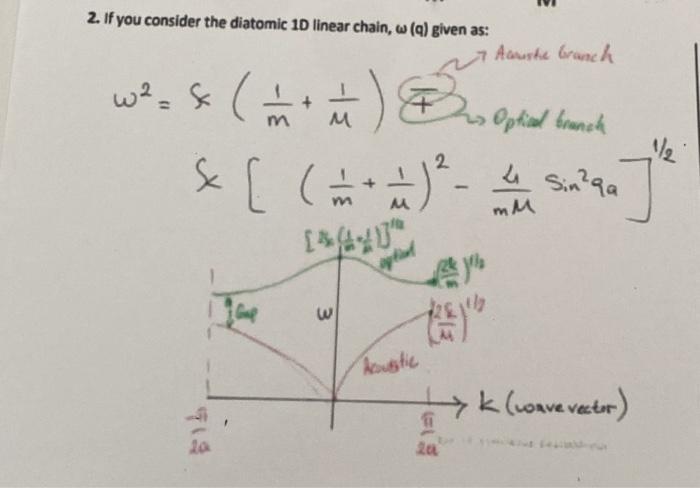 2. If you consider the diatomic 1D linear chain, ω (q) given as:
Acoustic branch
ω² = k ( 1/m + 1/M ) ∓
Optical branch
k [ ( 1/m + 1/M )² - 4/mM Sin²qa ]^1/2
[2k(1/m+1/M)]^1/2
optical
(2k/m)^1/2
Gap
ω
(2k/M)^1/2
Acoustic
k (wave vector)
-π/2a
π/2a